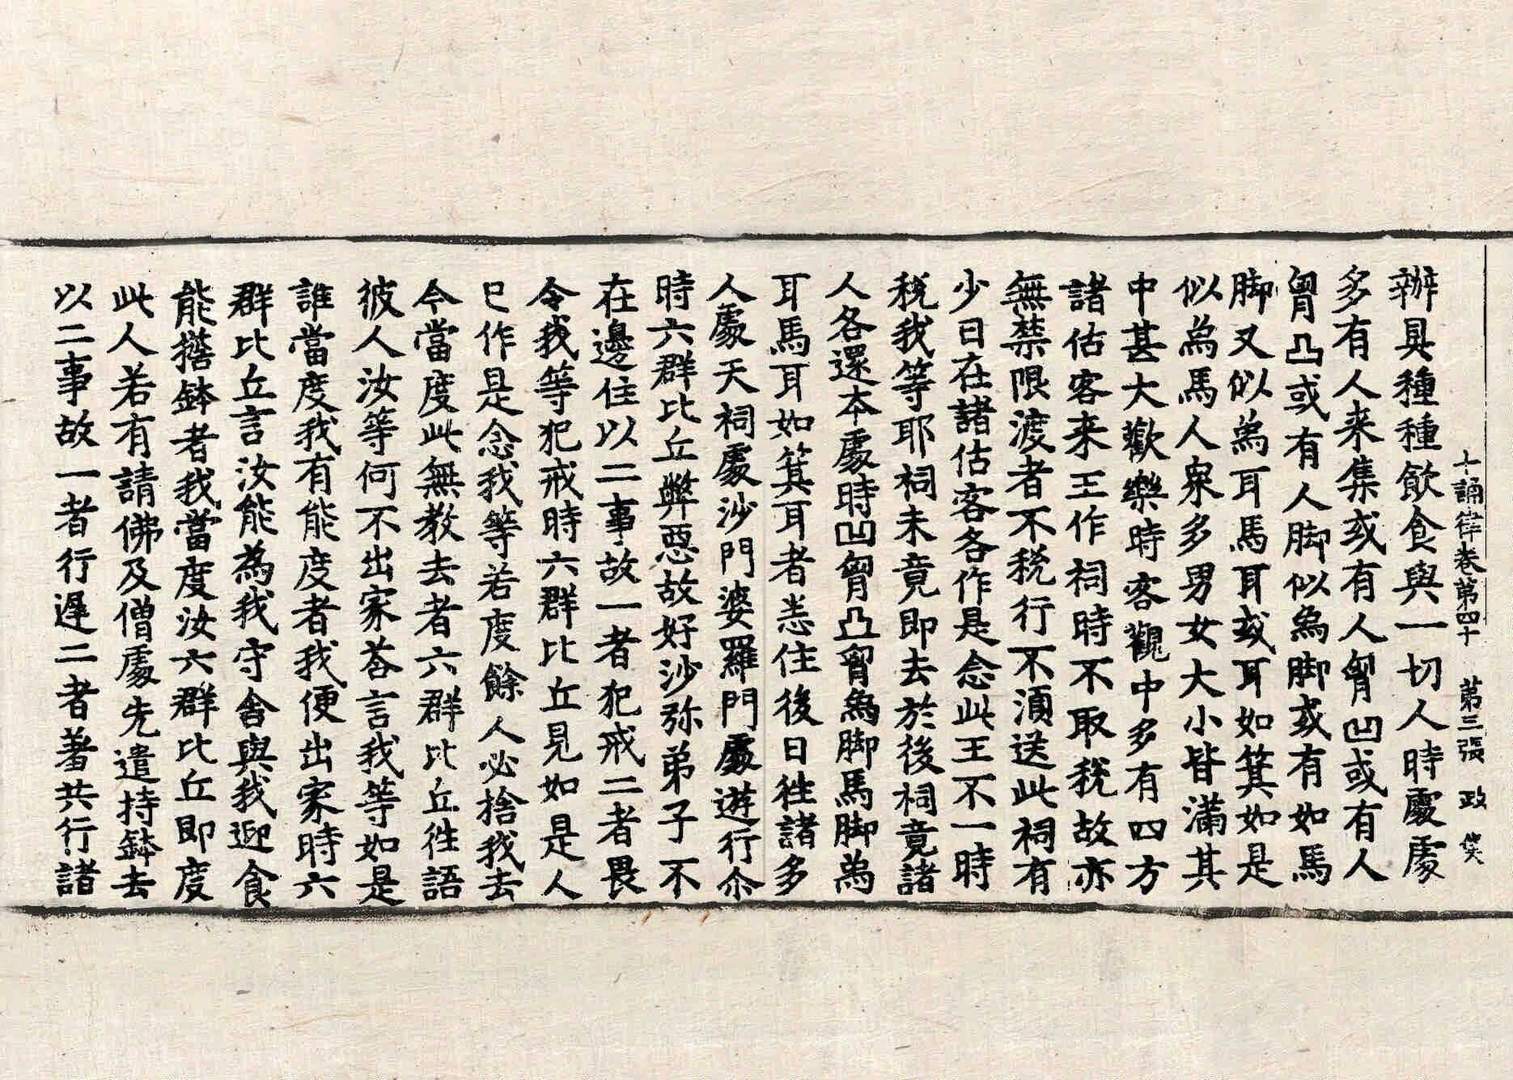 十誦律卷第四十 第三張 政
辦具種種飲食與一切人時處處
多有人来集或有人胷凹或有人
胷凸或有人脚似象脚或有如馬
脚又似象耳馬耳或耳如箕如是
似象馬人衆多男女大小皆滿其
中甚大歡樂時客觀中多有四方
諸估客来王作祠時不取稅故亦
無禁限渡者不稅行不湏送此祠有
少日在諸估客各作是念此王不一時
稅我等耶祠未竟即去於後祠竟諸
人各還本處時凹胷凸胷象脚馬脚象
耳馬耳如箕耳者恙住後日徃諸多
人處天祠處沙門婆羅門處遊行尒
時六群比丘弊惡故好沙弥弟子不
在邊住以二事故一者犯戒二者畏
令我等犯戒時六群比丘見如是人
已作是念我等若度餘人必捨我去
今當度此無教去者六群比丘徃語
彼人汝等何不出家荅言我等如是
誰當度我有能度者我便出家時六
群比丘言汝能為我守舍與我迎食
能擔鉢者我當度汝六群比丘即度
此人若有請佛及僧處先遣持鉢去
以二事故一者行遲二者著共行諸